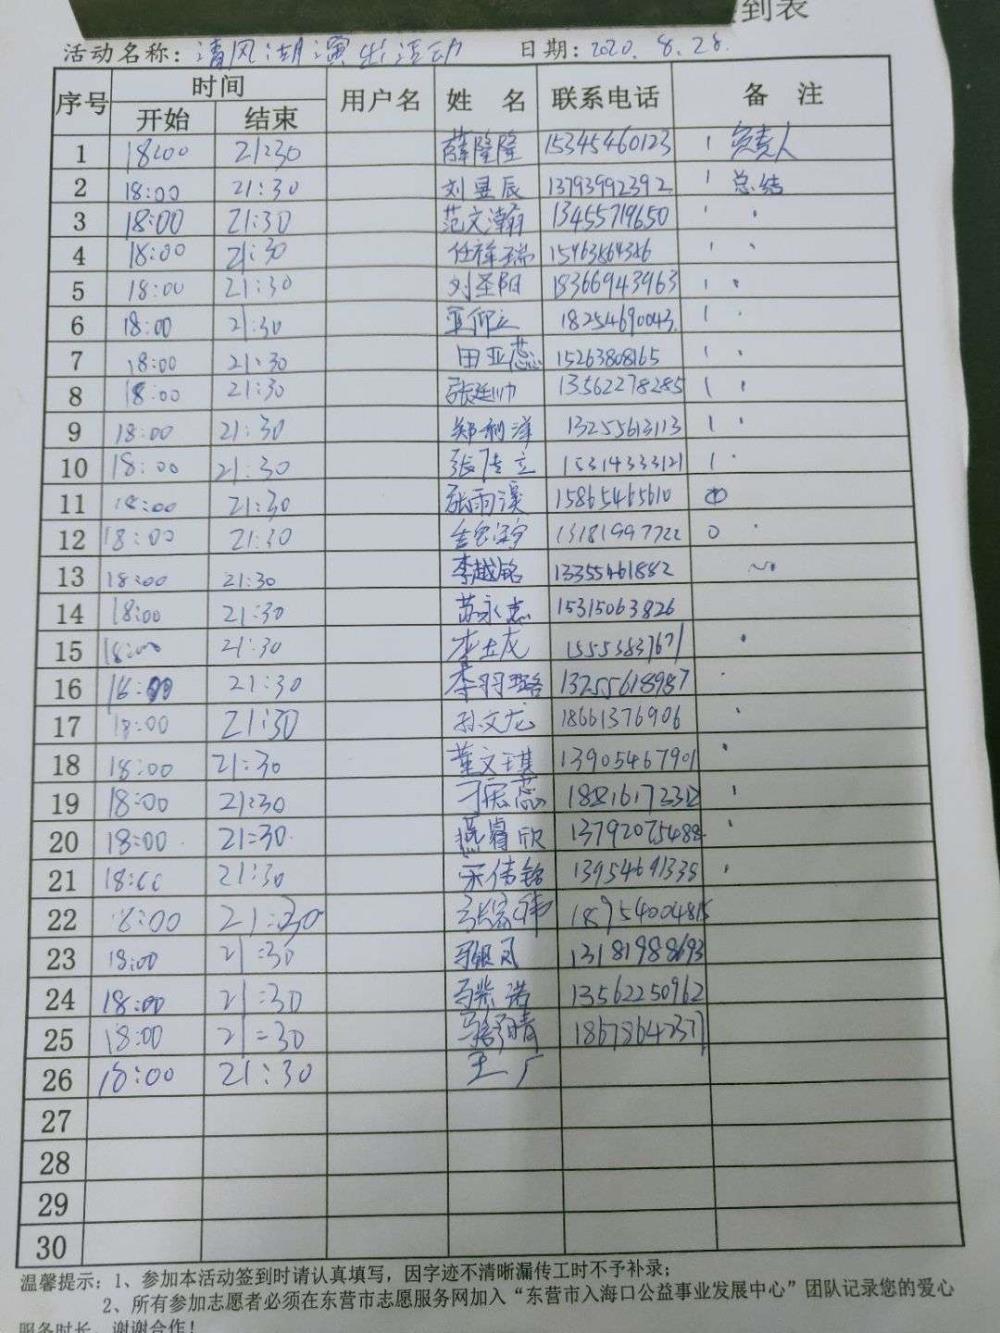 到表
活动名称：清风湖演出活动 日期：2020.8.28.
序号 时间 用户名 姓 名 联系电话 备 注
开始 结束
1 18:00 21:30 薛隆隆 15345460123 1 负责人
2 18:00 21:30 刘昱辰 13793992392 1 总结
3 18:00 21:30 范文瀚 13455719650
4 18:00 21:30 任祥瑞 15463864386
5 18:00 21:30 刘圣阳 18366943963 1
6 18:00 21:30 18254690043 1
7 18:00 21:30 田亚蕊 15263808165 1
8 18:00 21:30 张廷帅 13562278285 1
9 18:00 21:30 郑利洋 13255613113 1
10 18:00 21:30 15314333121 1
11 18:00 21:30 张雨溪 15865465610
12 18:00 21:30 13181997722 0
13 18:00 21:30 李越铭 13355461882
14 18:00 21:30 苏永志 15315063826
15 18:00 21:30 15553837671
16 18:00 21:30 李羽璐 13255618987
17 18:00 21:30 孙文龙 18661376906
18 18:00 21:30 董文琪 13905467901
19 18:00 21:30 刁宸蕊
20 18:00 21:30 燕睿欣 13792075488
21 18:00 21:30 宋伟铭 13954691335
22 18:00 21:30 张家伟 18954004815
23 18:00 21:30 13181988693
24 18:00 21:30 马紫诺 13562250962
25 18:00 21:30 18678642371
26 18:00 21:30
27
28
29
30
温馨提示：1、参加本活动签到时请认真填写，因字迹不清晰漏传工时不予补录；
2、所有参加志愿者必须在东营市志愿服务网加入“东营市入海口公益事业发展中心”团队记录您的爱心
服务时长，谢谢合作！